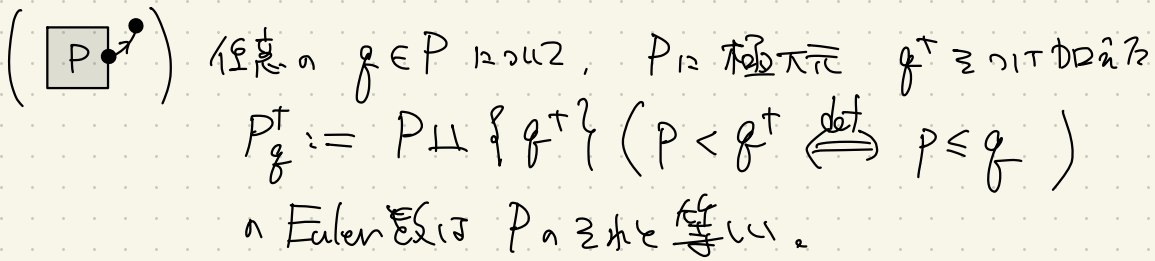 ( P ) 任意の q ∈ P について, Pに極大元 q⁺ をつけ加えた
P_q⁺ := P ⨿ { q⁺ } ( p < q⁺ ⇔(def) p ≤ q )
の Euler 数は P のそれと等しい。